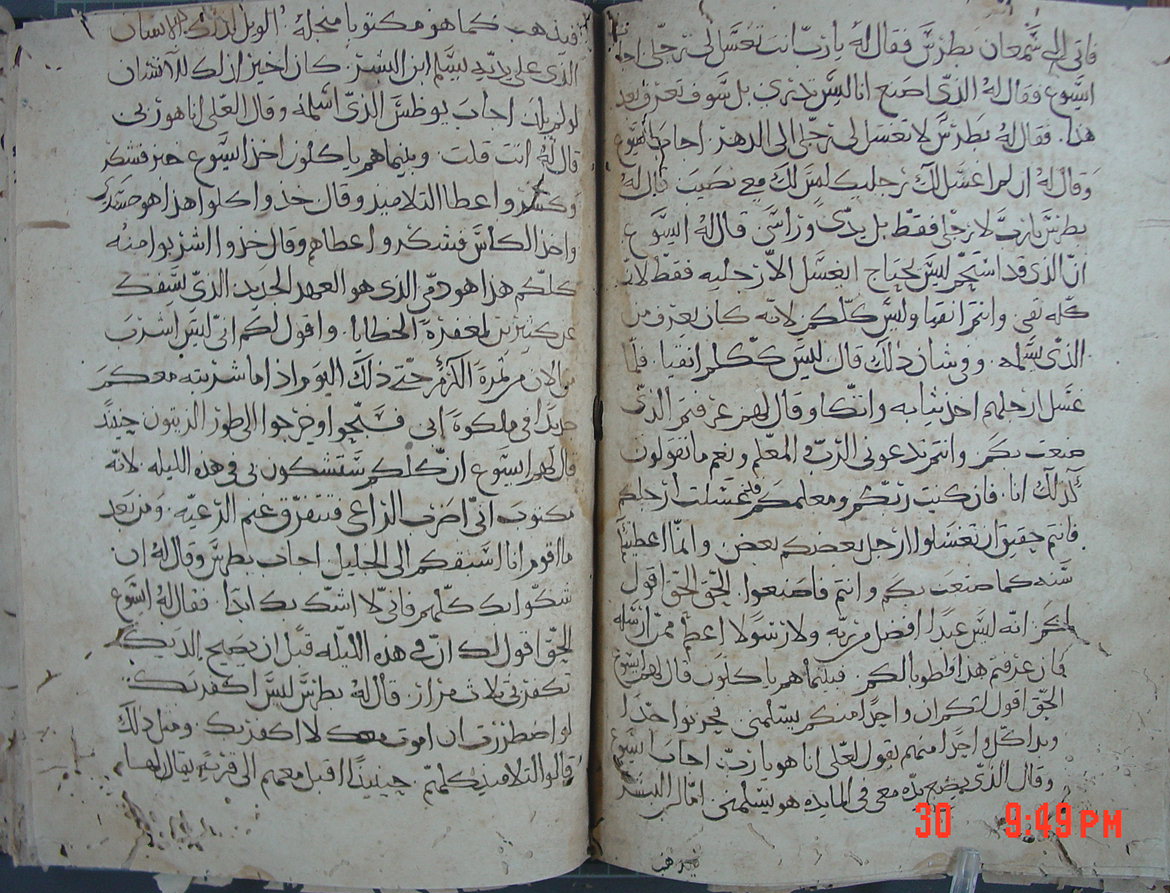 فاتى الى شمعان بطرس فقال له يا رب انت تغسل لى رجلى اجاب
ايسوع فقال له الذى اصنع انا ليس تدرى بل سوف تعرف بعد
هذا. فقال له بطرس لا تغسل لى رجلى الى الدهر. اجاب ايسوع
وقال له ان لم اغسل لك رجليك ليس لك معى نصيب قال له
بطرس يا رب لا رجلى فقط بل يدى وراسى قال له ايسوع
ان الذى قد استحم ليس يحتاج ان يغسل الا رجليه فقط لانه
كله نقى وانتم انقيا وليس كلكم لانه كان يعرف من
الذى يسلمه. ومن شان ذلك قال ليس كلكم انقيا. فلما
غسل ارجلهم اخذ ثيابه واتكا وقال لهم عرفتم الذى
صنعت بكم وانتم تدعونى الرب والمعلم ونعم ما تقولون
لانى كذلك انا. فان كنت ربكم ومعلمكم غسلت ارجلكم
فانتم حقيق ان تغسلوا ارجل بعضكم بعض. وانما اعطيتكم
سنه كما صنعت بكم وانتم فاصنعوا. الحق الحق اقول
لكم انه ليس عبدا افضل من ربه ولا رسولا اعظم ممن ارسله
فان عرفتم هذا فطوبا لكم. فبينما هم ياكلون قال لهم ايسوع
الحق اقول لكم ان واحدا منكم يسلمنى فحزنوا جدا
وبدا كل واحدا منهم يقول لعلى انا هو يا رب. اجاب ايسوع
وقال الذى يضع يده معى فى المايده هو يسلمنى اما ابن البشر
فيذهب
فيذهب كما هو مكتوبا من جله. الويل لذلك الانسان
الذى على يديه يسلم ابن البشر. كان اخير لذلك الانسان
لو لم يلد. اجاب يوظس الذى اسلمه وقال العلى انا هو ربى
قال له انت قلت. وبينما هم ياكلون اخذ ايسوع خبز فشكر
وكسر واعطا التلاميد وقال خذوا كلوا هذا هو جسدى
واخذ الكاس فشكر واعطاهم وقال خذوا اشربوا منه
كلكم هذا هو دمى الذى هو العهد الجديد الذى يسفك
عن كثيرين لمغفرة الخطايا. واقول لكم انى ليس اشرب
من الان من ثمرة الكرم حتى ذلك اليوم اذا ما شربته معكم
جديدا فى ملكوة ابى فسبحوا وخرجوا الى طور الزيتون حينيذ
قال لهم ايسوع ان كلكم ستشكون بى فى هذه الليله لانه
مكتوب انى اضرب الراعى فتتفرق غنم الرعيه. ومن بعد
ما اقوم انا اسبقكم الى الجليل اجاب بطرس وقال له ان
شكوا بك كلهم فانى لا اشك بك ابدا. فقال له ايسوع
الحق اقول لك ان فى هذه الليله قبل ان يصيح الديك
تكفر بى ثلاث مرار. قال له بطرس ليس اكفر بك
لو اضطررت ان اموت معك لا اكفر بك. ومثل ذلك
قالوا التلاميد كلهم حينيذا اقبل معهم الى قرية يقال لها
30 9:49PM